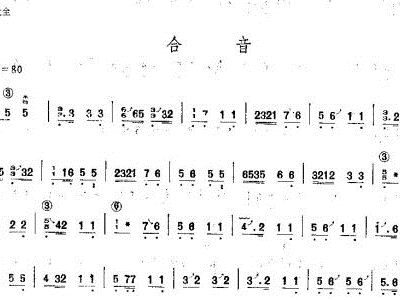 大全
合 音
=80
③
5 5 | 3.3 3 3 | 6 65 3 32 | 1 7 1 1 | 2321 7 6 | 5 6 1 1 | 3.2
③
3 32 | 1 16 5 5 | 2321 7 6 | 5 6 5 5 | 6535 6 6 | 3212 3 3 | 5 *
③ ⑥
2 2 | 5 42 1 1 | 1 * 7 6 | 5 6 1 1 | 4.2 1 1 | 5 6 1 1 | 1.6
5 5 | 4 32 1 1 | 5 77 1 1 | 3 2 3 2 | 5 6 1 1 | 5 6 5 5 | 5.6